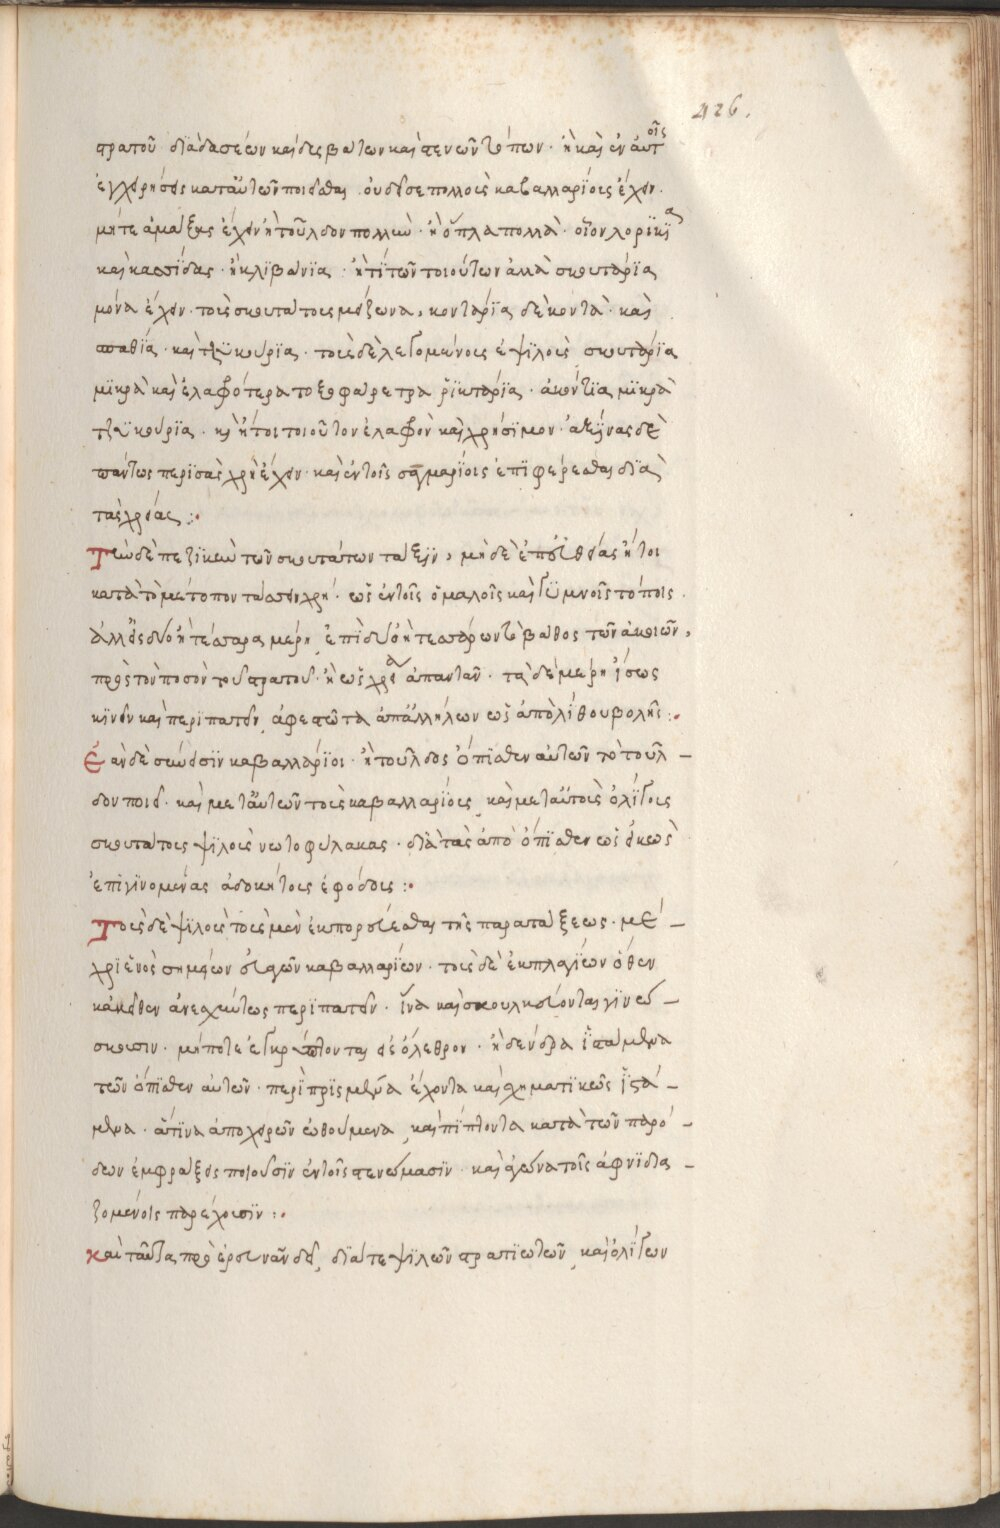 426.
στρατοῦ διὰ δασέων καὶ δυσβάτων καὶ στενῶν τόπων · ἢ καὶ ἐν αὐτοῖς
ἐγχειρήσεις κατ' αὐτῶν ποιεῖσθαι οὐ δεῖ σε πολλοὺς καβαλλαρίους ἔχειν ·
μήτε ἁμάξας ἔχειν ἢ τοῦλδον πολλὺ · ἢ ὅπλα πολλὰ · οἷον λορίκϊα
καὶ κασσίδας · ἢ κλϊβάνϊα · ἢ τὶ τῶν τοιούτων ἀλλὰ σκουτάρϊα
μόνα ἔχειν · τοὺς σκουτάτους μείζωνα, κοντάρϊα δὲ κοντὰ · καὶ
σπαθία · καὶ τζϊκούρϊα · τοὺς δὲ λεγομένους ἐψϊλοὺς σκουτάρϊα
μϊκρὰ καὶ ἐλαφρότερα τοξοφάρετρα ῥϊκτάρϊα · ἀκόντϊα μϊκρὰ
τζϊκούρϊα · κὴ ἤτοι τοιοῦτον ἐλαφρὸν καὶ χρήσϊμον · ἀξίνας δὲ
πάντως περϊσσὰς χρὴ ἔχειν · καὶ ἐν τοῖς σαγμαρίοις ἐπϊφέρεσθαι διὰ
τὰς χρείας :·
Τὴν δὲ πεζϊκὴν τῶν σκουτάτων τάξϊν, μὴ δὲ ἐπ' εὐθείας ἤτοι
κατὰ τὸ μέτοπον τάσσειν χρή · ὡς ἐν τοῖς ὁμαλοῖς καὶ γϋμνοῖς τόποις ·
ἀλλ' εἰς δύο ἢ τέσσαρα μέρη ἐπὶ δύο ἢ τεσσάρων τὸ βάθος τῶν ἀκιῶν,
πρὸς τὸν ποσὸν τοῦ στρατοῦ · ἢ ὡς χρεία ἀπαντᾶν · τὰ δὲ μέρη ἴσως
κϊνεῖν καὶ περϊπατεῖν ἀφεστῶτα ἀπ' ἀλλήλων ὡς ἀπὸ λϊθουβολῆς :·
Ἐὰν δὲ συνώσϊν καβαλλάρϊοι · ἢ τοῦλδος ὄπϊσθεν αὐτῶν τὸ τοῦλ –
δον ποιεῖ · καὶ μετ' αὐτῶν τοὺς καβαλλαρίους καὶ μετ' αὐτοὺς ὀλίγους
σκουτάτους ψϊλοὺς νωτοφύλακας · διὰ τὰς ἀπὸ ὄπϊσθεν ὡς εἰκὼς
ἐπϊγϊνομένας ἀδοκήτους ἐφόδους :·
Τοὺς δὲ ψϊλοὺς τοὺς μὲν ἐκπορεύεσθαι τῆς παρατάξεως · μέ –
χρϊ ἑνὸς σημείων σὺν τῶν καβαλλαρίων · τοὺς δὲ ἐκ πλαγίων ὅθεν
κἀκεῖθεν ἀνεσχύτως περϊπατεῖν · ἵνα καὶ σκουλκεύονται γϊνώ –
σκουσιν · μήποτε ἐγκρύπτονται εἰς ὄλεθρον · ἢ δένδρα ἱστάμενα
τῶν ὄπϊσθεν αὐτῶν · περϊπρϊσμένα ἔχοντα καὶ σχηματϊκῶς ἱστά –
μενα · ἅτϊνα ἀπὸ χειρῶν ὠθούμενα καὶ πίπτοντα κατὰ τῶν παρό –
δων ἐμφράξεις ποιοῦσϊν ἐν τοῖς στενώμασϊν · καὶ ἀγῶνα τοῖς αἰφνιδια –
ζομένοις παρέχουσϊν :·
Καὶ ταῦτα προερευνᾶν δεῖ, διά τε ψϊλῶν στρατϊωτῶν καὶ ὀλίγων